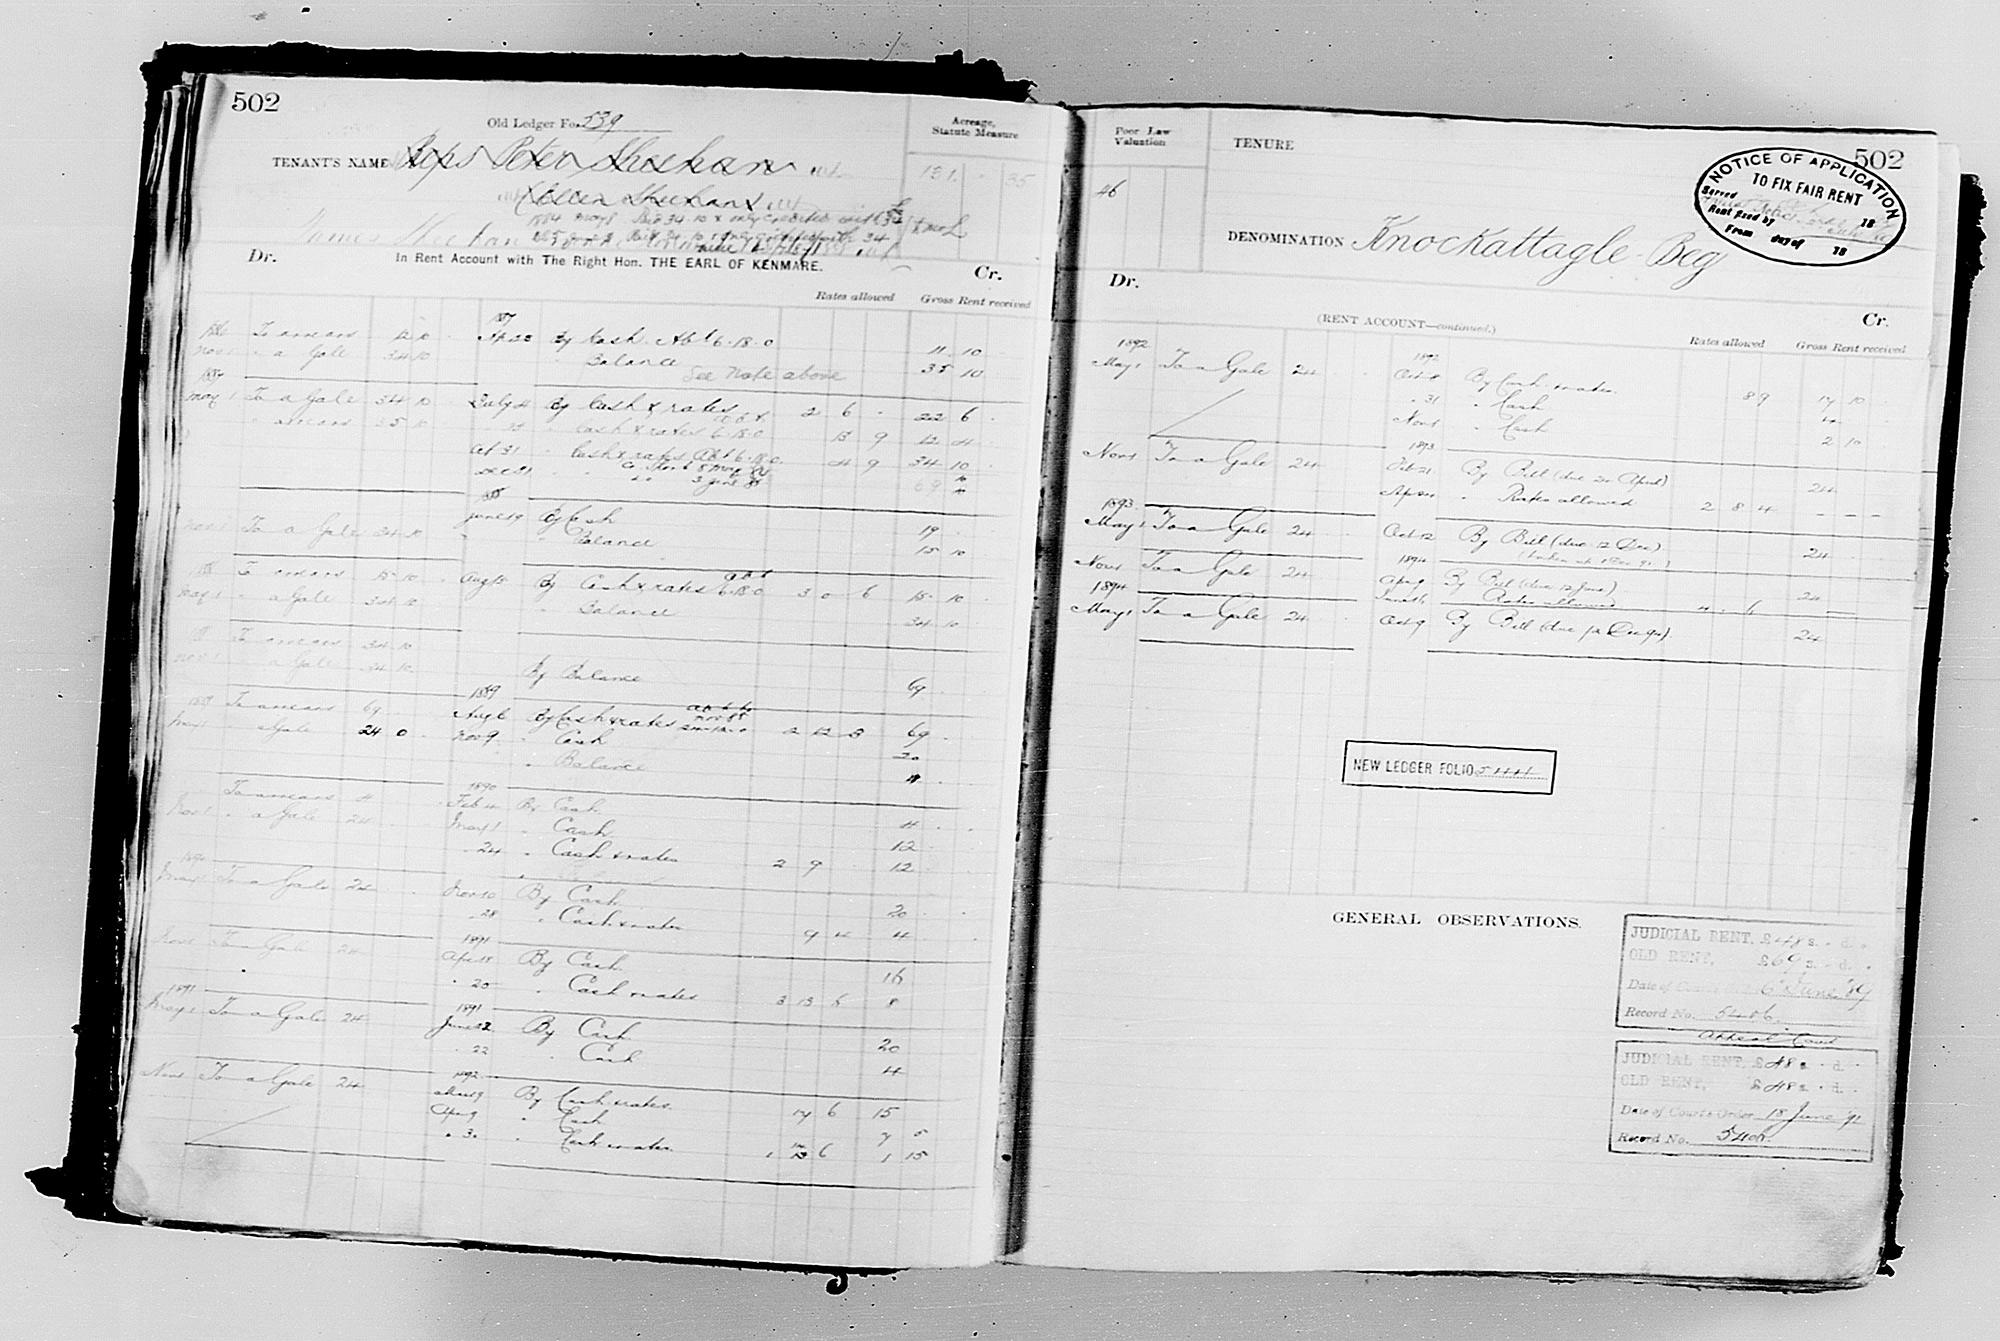 502
Old Ledger Fo. 539
Acreage, Statute Measure
TENANT'S NAME Reps Peter Sheehan
131 . 35
Ellen Sheehan
James Sheehan
Dr. In Rent Account with The Right Hon. THE EARL OF KENMARE. Cr.
Rates allowed Gross Rent received
1887
To arrears 12 10 Ap 28 By Cash 6.18.0 11 10
Nov 1 " a Gale 34 10 Balance 35 10
See Note above
1887
May 1 To a Gale 34 10 July 4 By Cash & rates 2 6 . 22 6
" arrears 35 10 " Cash & rates 6.18.0 13 9 12 4
31 " Cash & rates 6.18.0 4 9 34 10
Dec 21
1888
June 19 By Cash 19
Nov 1 To a Gale 34 10 " Balance 15 10
To arrears 15 10 Aug 18 By Cash & rates 6.18.0 3 0 6 15 10
May 1 " a Gale 34 10 " Balance 34 10
To arrears 34 10
Nov 1 " a Gale 34 10 By Balance 69
1889
To arrears 69 Aug 6 By Cash & rates 2 12 8 69
May 1 " a Gale 24 0 Nov 9 " Cash 20
" Balance 4
1890
To arrears 4 Feb 4 By Cash 4
Nov 1 " a Gale 24 May 1 " Cash 12
24 " Cash & rates 2 9 12
1890
May 1 To a Gale 24 Nov 10 By Cash 20
" 28 " Cash & rates 9 4 4
1891
Nov 1 To a Gale 24 Apr 18 By Cash 16
" 20 " Cash & rates 3 13 6 8
1891 1891
May 1 To a Gale 24 June 22 By Cash 20
" 22 " Cash 4
1892
Nov 1 To a Gale 24 Mar 9 By Cash & rates 17 6 15
Apr 9 " Cash 7 5
" 30 " Cash & rates 1 6 1 15
Poor Law Valuation
TENURE
502
46
NOTICE OF APPLICATION
TO FIX FAIR RENT
Served 18
Rent fixed by
From day of 18
DENOMINATION Knockattagle Beg
Dr. (RENT ACCOUNT—continued.) Cr.
Rates allowed Gross Rent received
1892 1892
May 1 To a Gale 24 Oct 8 By Cash & rates 8 9 17 10
" 31 " Cash 4
Nov 1 " Cash 2 10
1893
Nov 1 To a Gale 24 Feb 21 By Bill (due 24 April) 24
Apr 24 " Rates allowed 2 8 4
1893
May 1 To a Gale 24 Oct 12 By Bill (due 12 Dec) 24
1894
Nov 1 To a Gale 24 Apr 9 By Bill (due 12 June) 24
Rates allowed 4 . 6
1894
May 1 To a Gale 24 Oct 9 By Bill (due 12 Dec 94) 24
NEW LEDGER FOLIO 544
GENERAL OBSERVATIONS.
JUDICIAL RENT, £48 s. - d. -
OLD RENT, £69 s. - d. -
Date of Courts Order 6 June '89
Record No. 5406
Appeal Court
JUDICIAL RENT, £48 s. - d. -
OLD RENT, £48 s. - d. -
Date of Courts Order 18 June '91
Record No. 5406